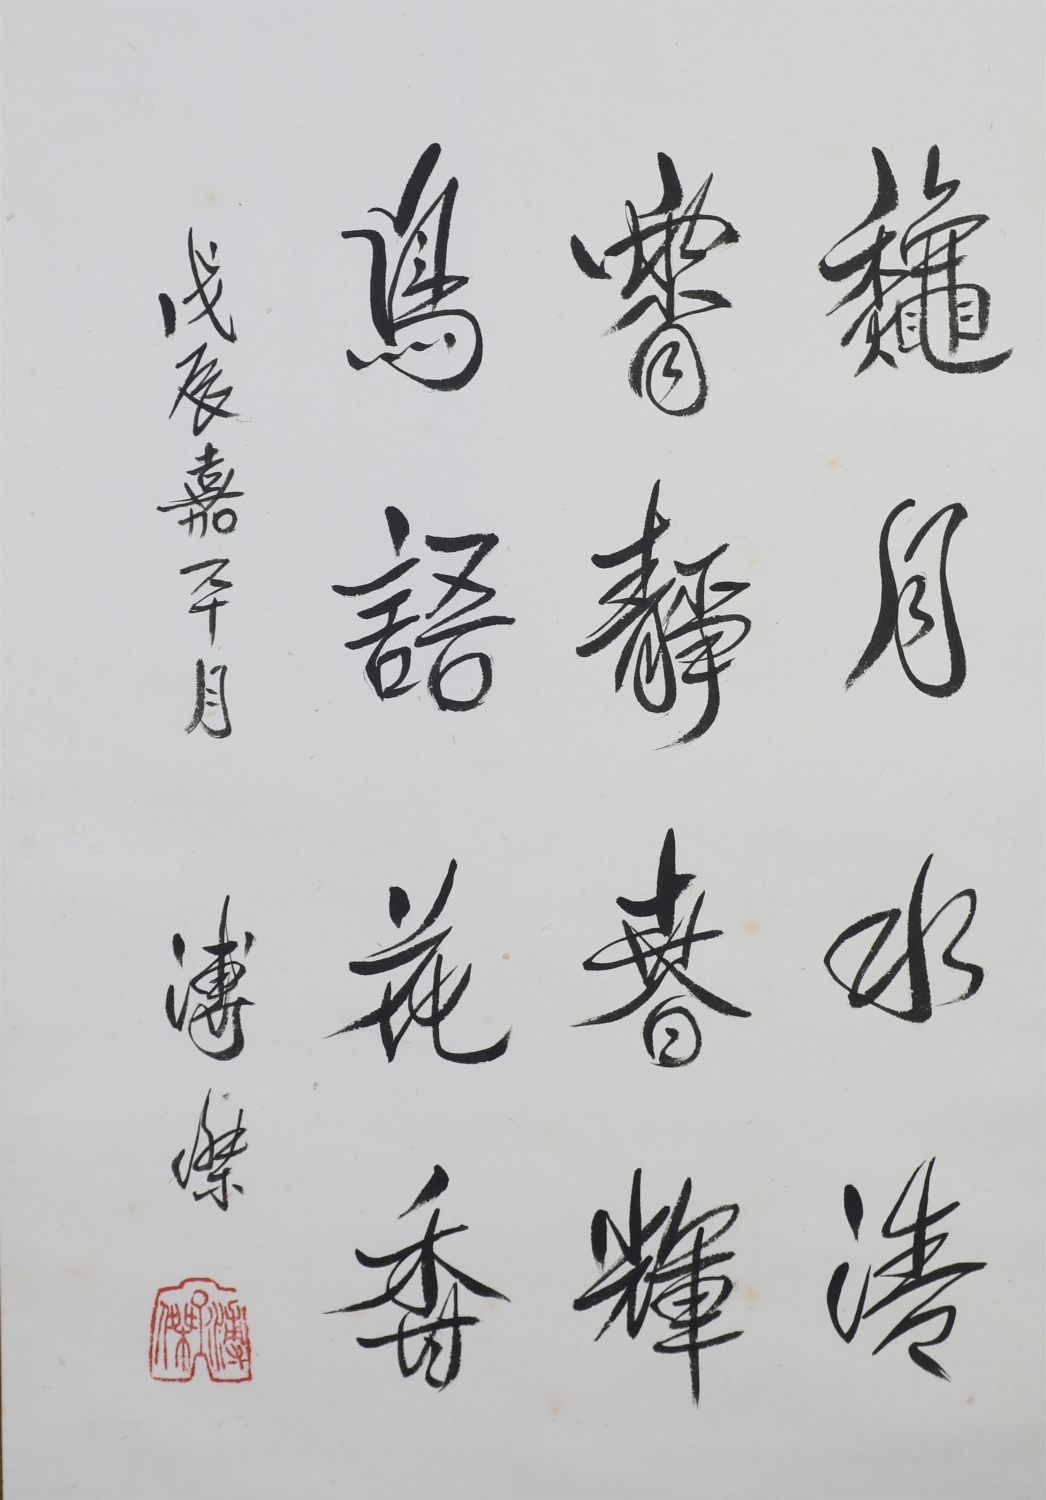 龝月水清
靜春輝
鳥語花香
戊辰嘉平月 溥傑
溥傑